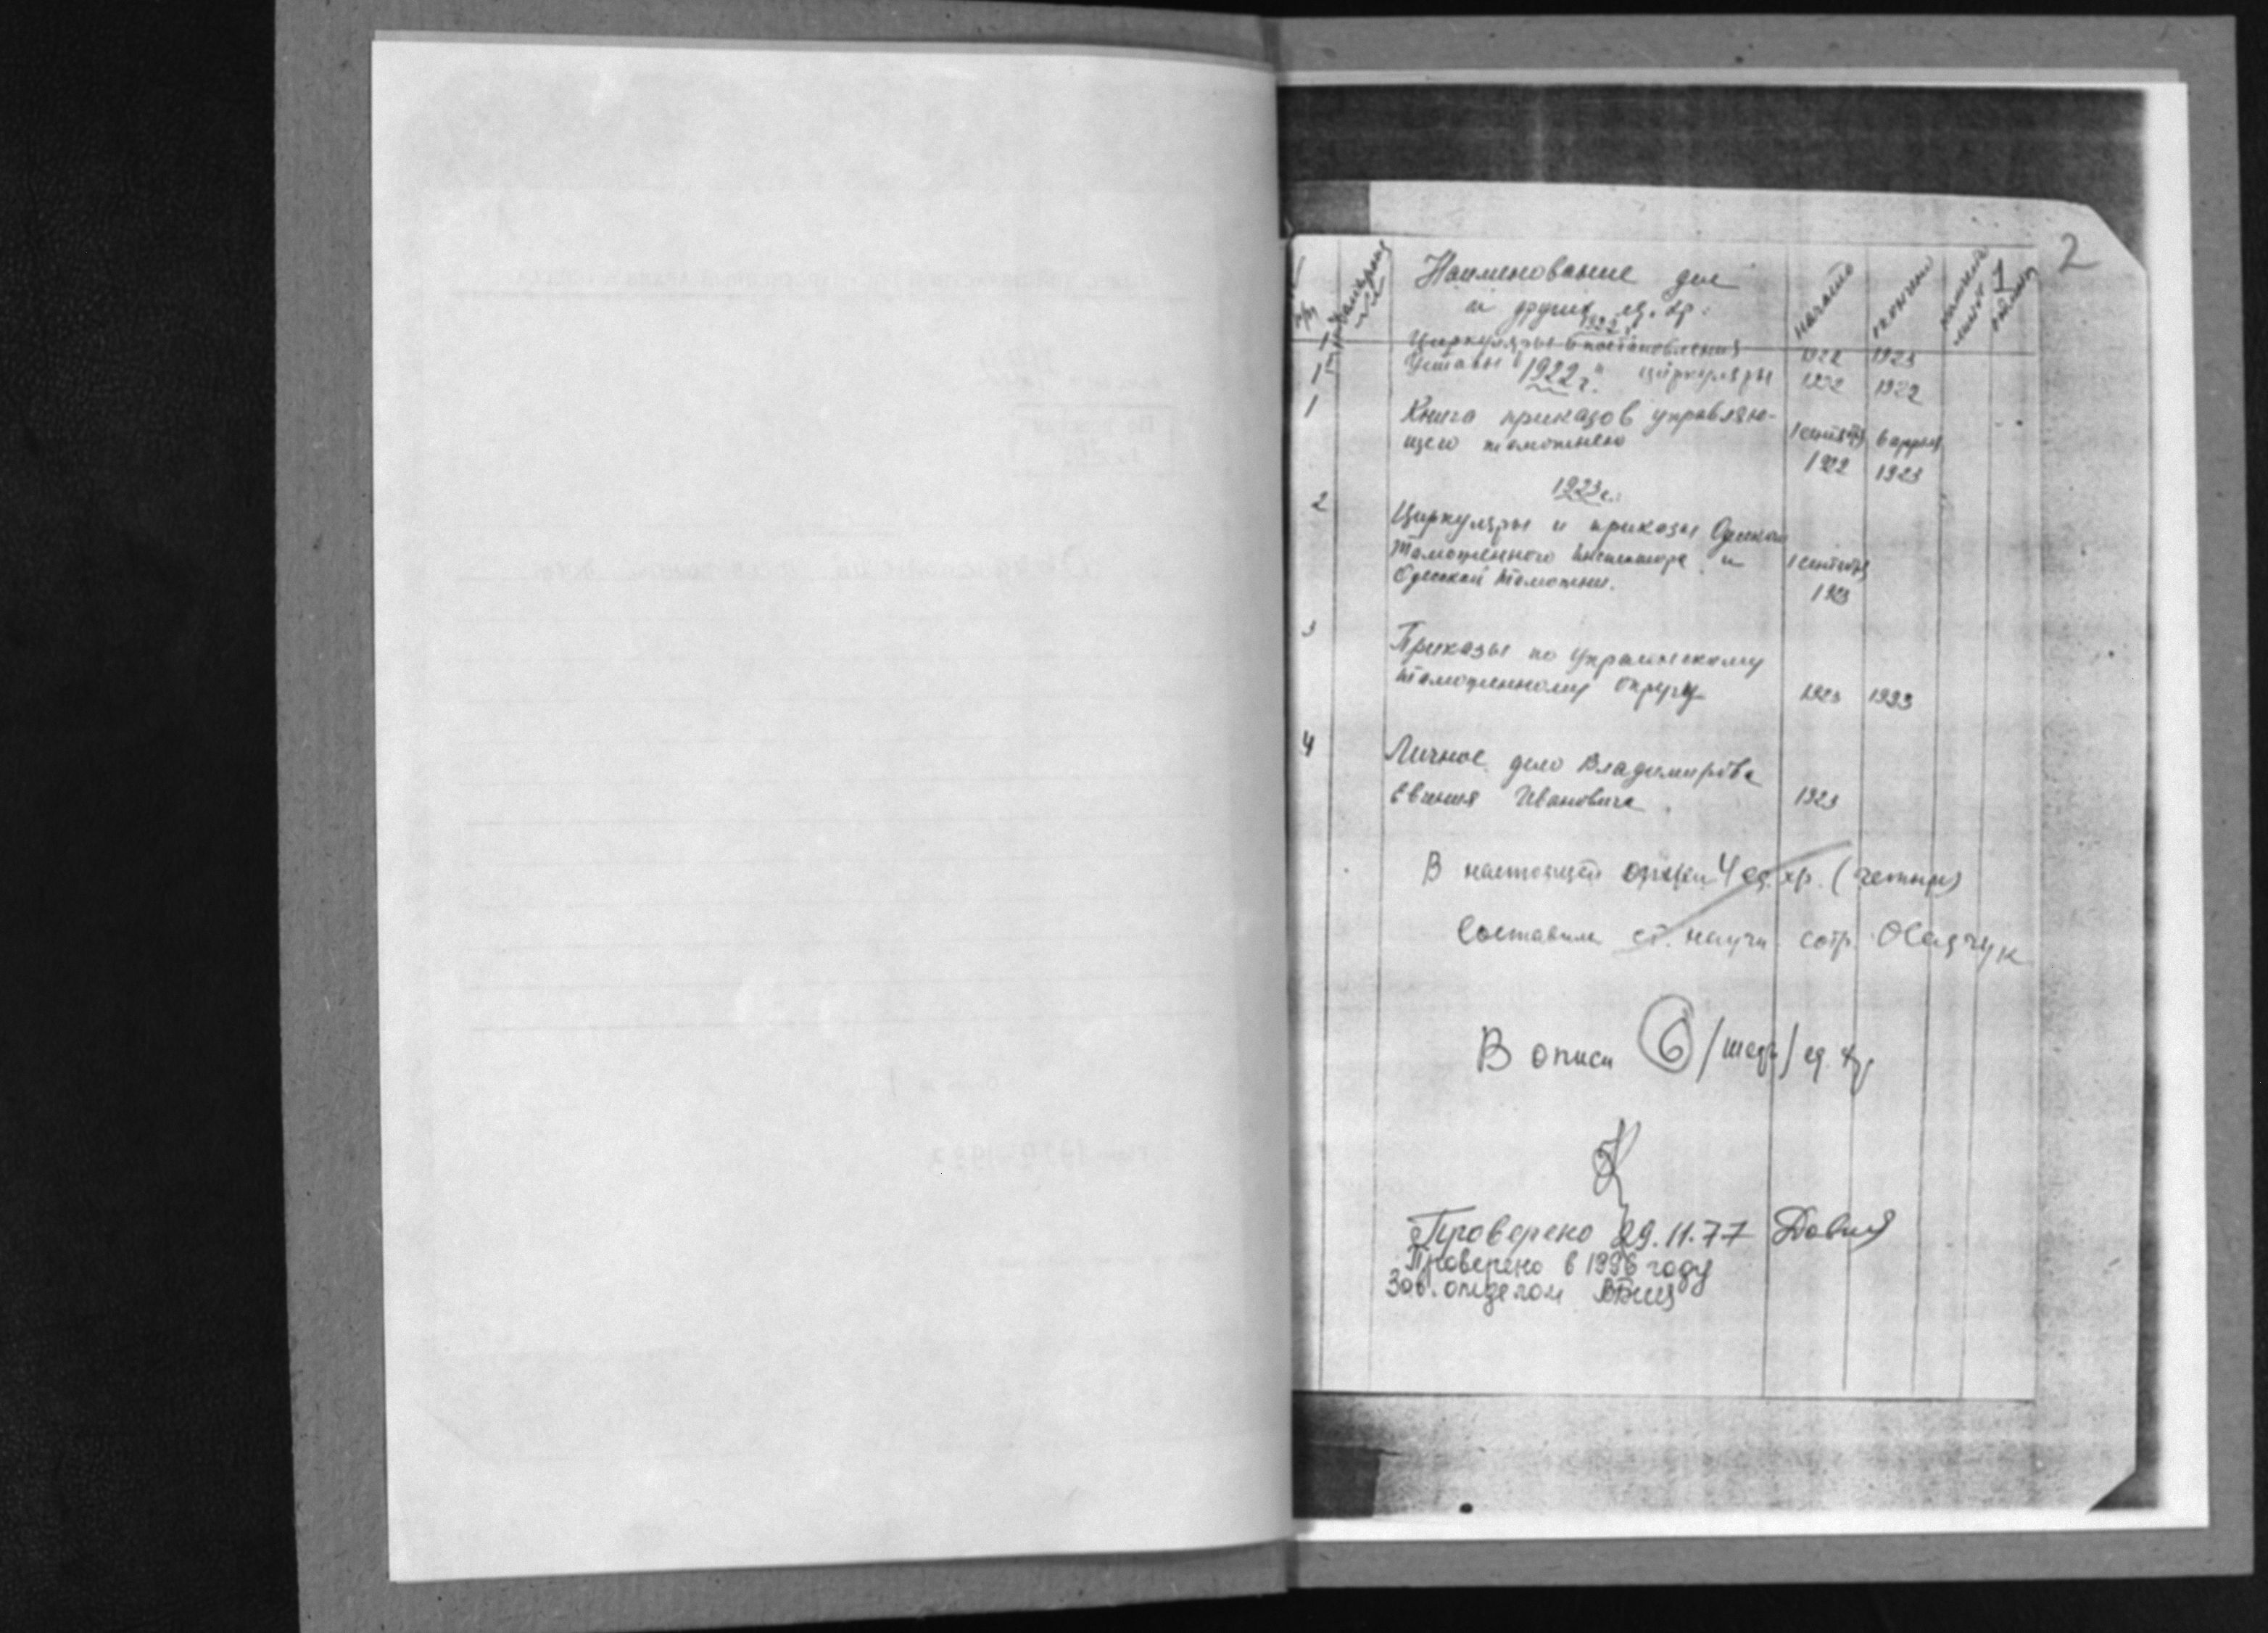 2
1
Наименование дел
и других ед. хр.
начато
окончено
1922 г.
Циркуляры и постановления 1922 1923
Уставы и циркуляры 1922 1922
1922 г.
1 Книга приказов управляю-
щего таможнею 1922 1923
1923 г.
2 Циркуляры и приказы
Таможенного инспектора и
Одесской таможни. 1923
3 Приказы по Украинскому
таможенному округу 1923 1923
4 Личное дело Владимирова
Ивановича 1923
В настоящей описи 4 ед. хр. (четыре)
Составил ст. научн. сотр. Осадчук
В описи 6 /шесть/ ед. хр
Проверено 29.11.77
Проверено в 1996 году
Зав. отделом